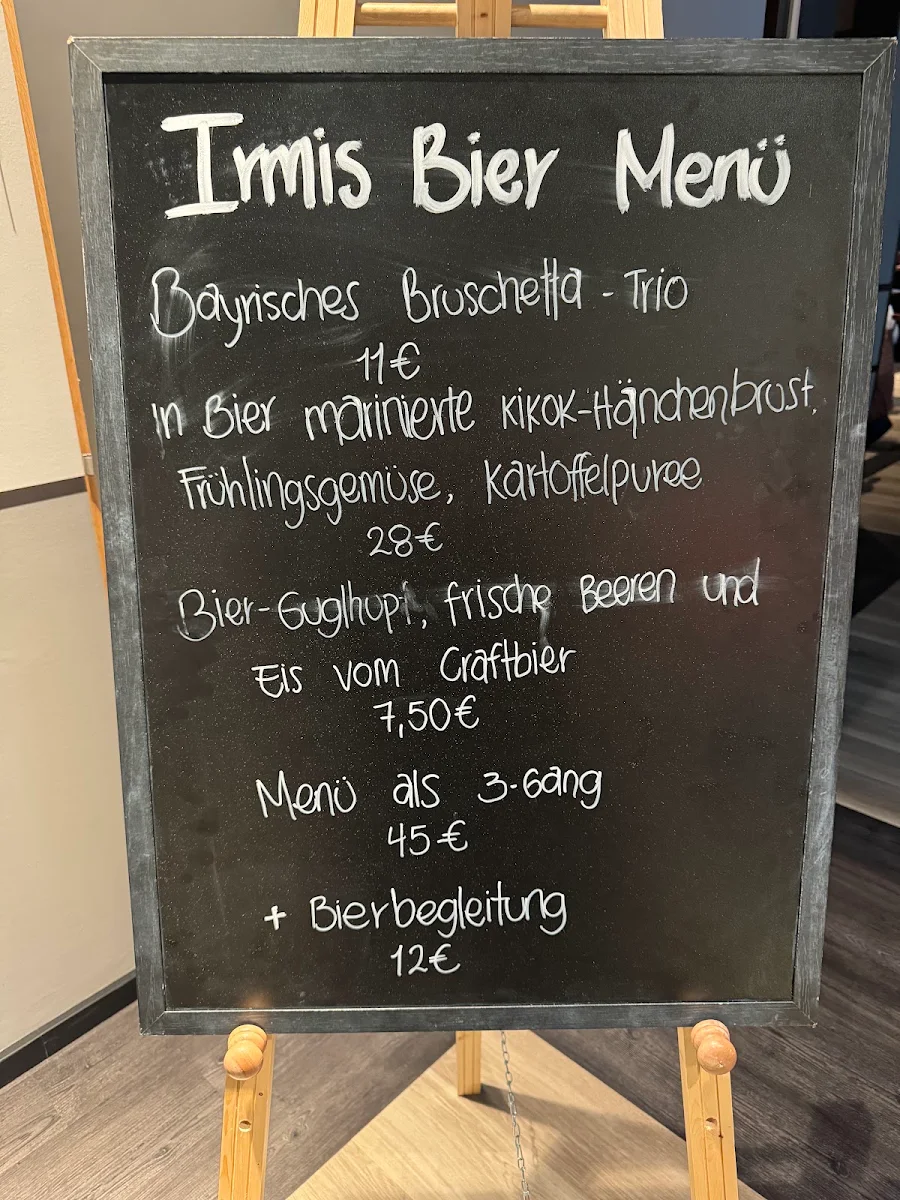 Irmis Bier Menü
Bayrisches Bruschetta - Trio
11€
in Bier marinierte KIKOK-Hänchenbrust,
Frühlingsgemüse, Kartoffelpuree
28€
Bier-Guglhupf, frische Beeren und
Eis vom Craftbier
7,50€
Menü als 3-Gang
45€
+ Bierbegleitung
12€